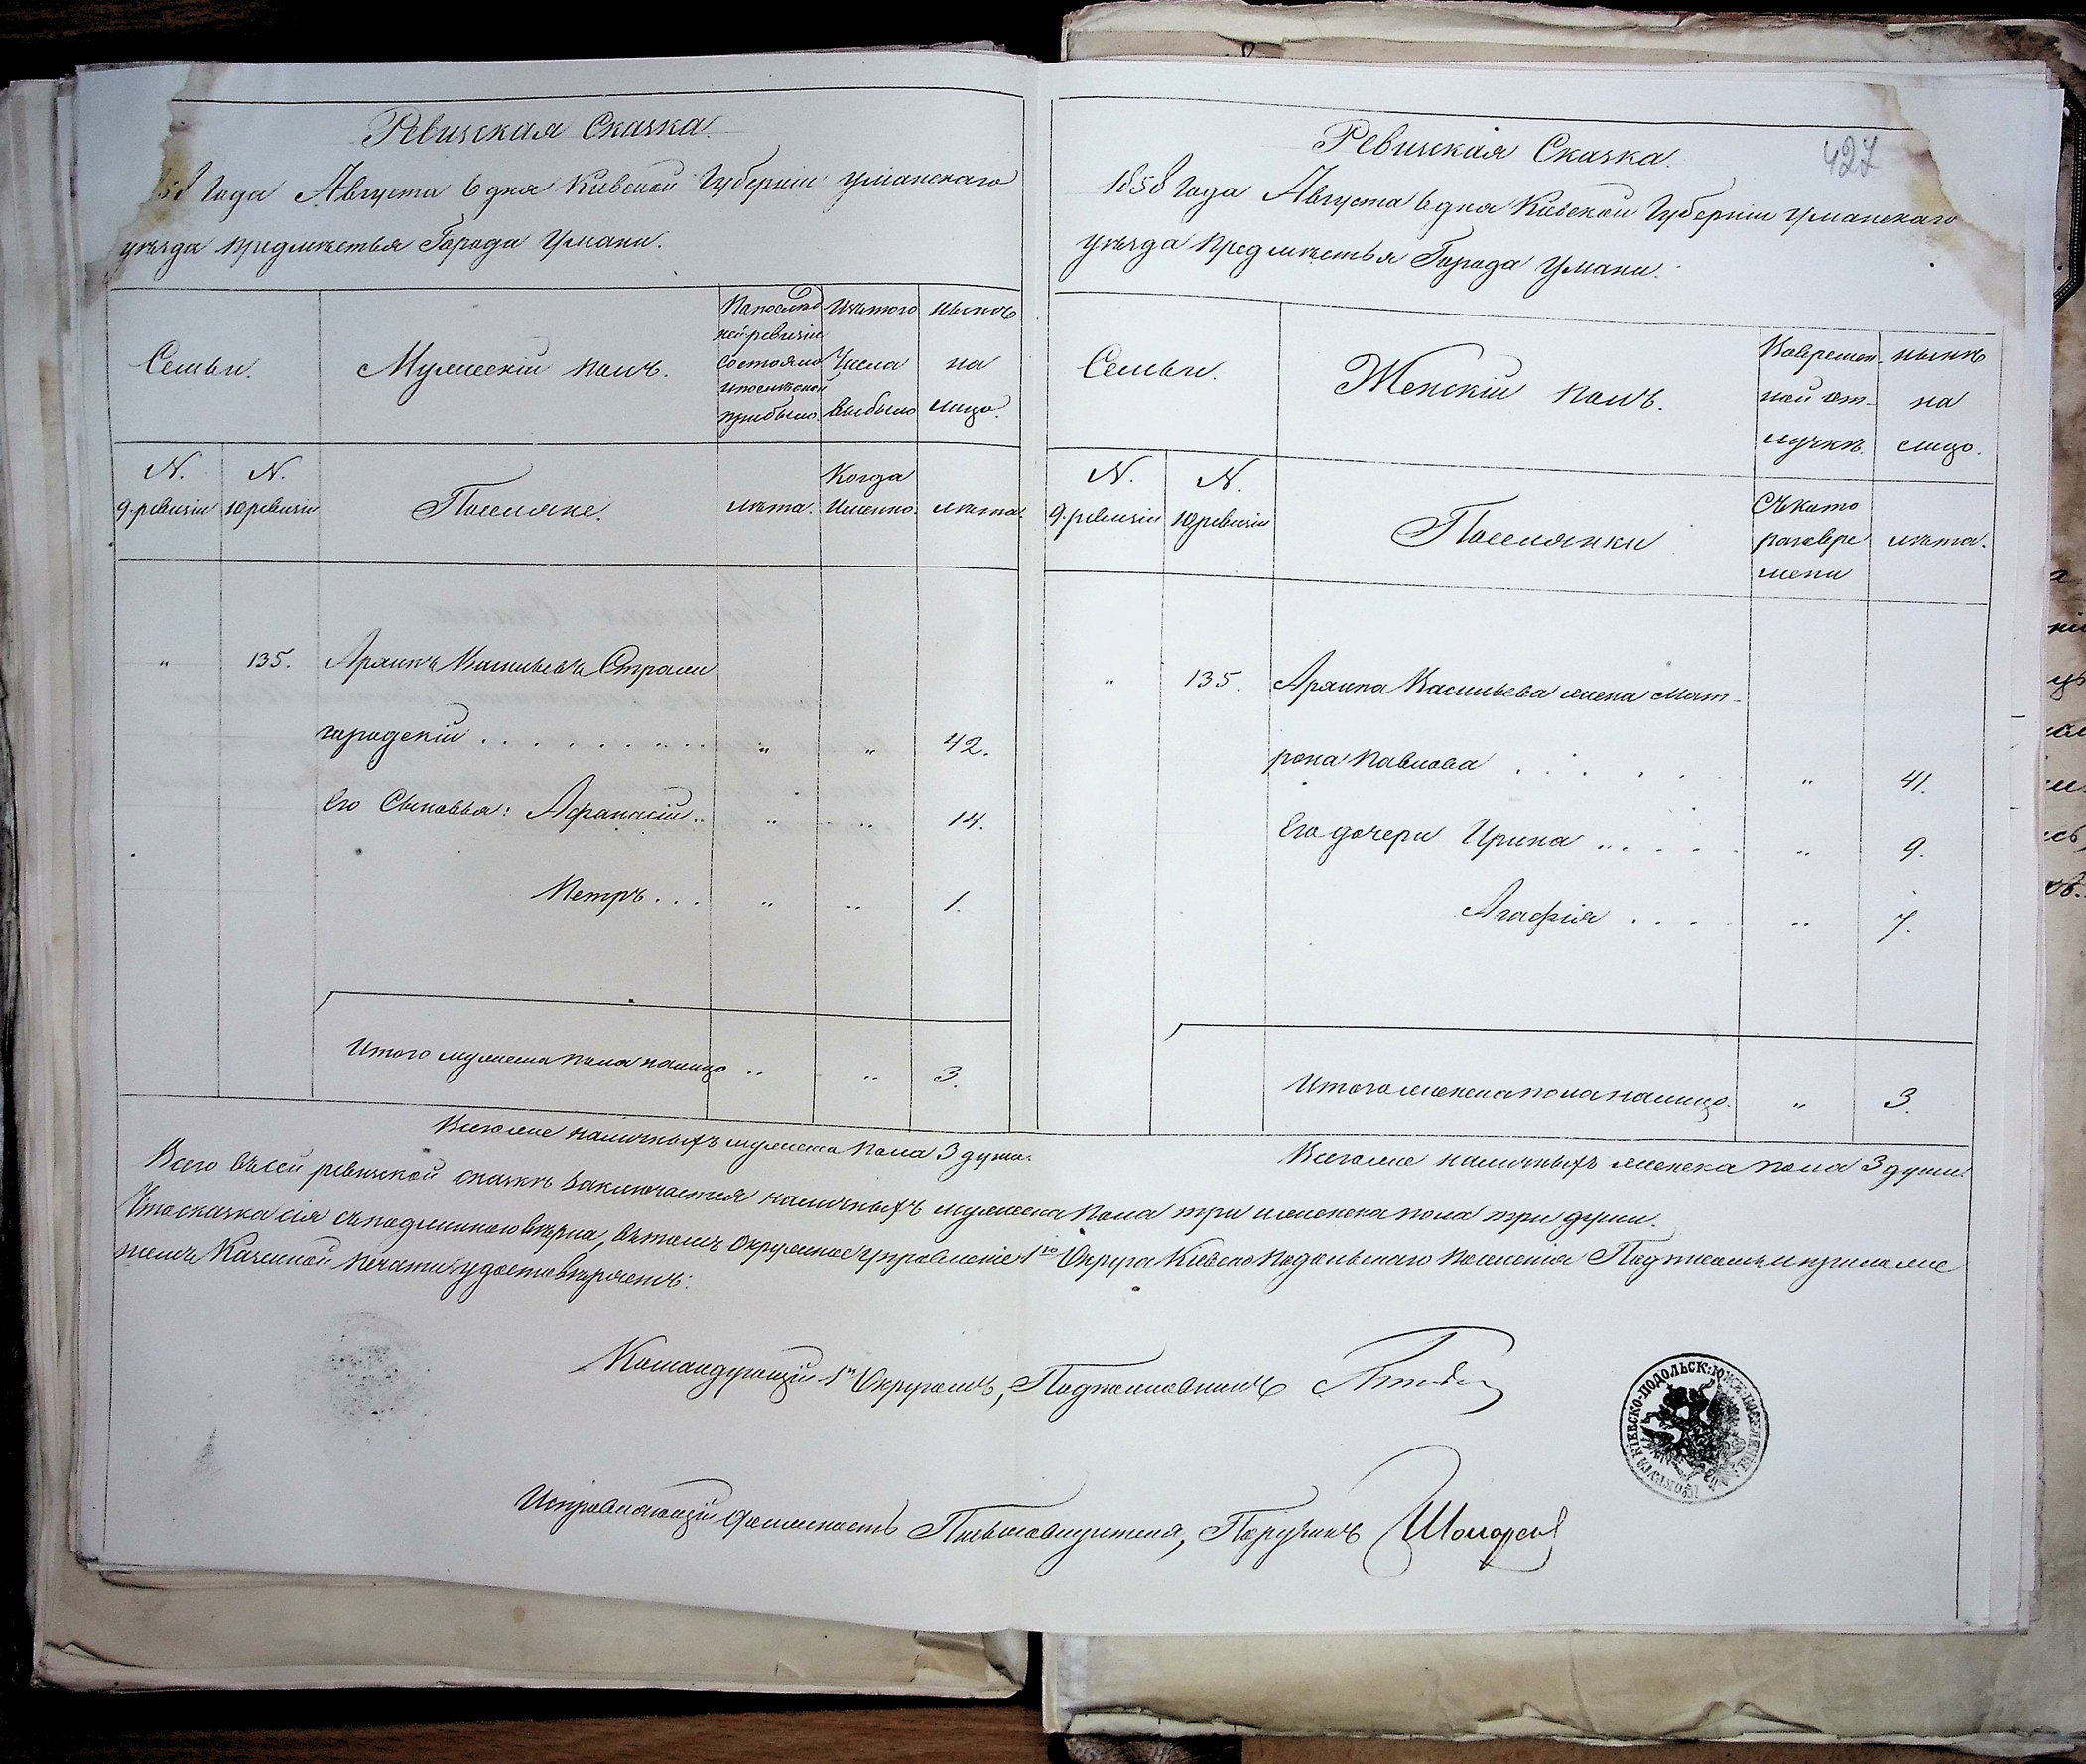 Ревизская Сказка.
58 Года Августа 6 дня Киевской Губернии Уманскаго
уѣзда предмѣстья Города Умани.
Семьи.
Мужескій полъ.
По послѣд
ней ревизіи
состояло
и послѣ оной
прибыло.
Изъ того
Числа
выбыло
нынѣ
на
лицо.
N.
9 ревизіи
N.
10 ревизіи
Поселяне.
лѣта.
Когда
Именно.
лѣта.
" 135. Васильевъ Старо
городскій . . . . . . . . " " 42.
Его Сыновья: Афанасій .. " " 14.
Петръ . . . " " 1.
Итого мужеска пола налицо " " 3.
Всего же наличныхъ мужеска пола 3 души.
427
Ревизская Сказка.
1858 Года Августа 6 дня Киевской Губерніи Уманскаго
уѣзда предмѣстья Города Умани.
Семьи.
Женскій полъ.
Во времен-
ной от-
лучкѣ.
нынѣ
на
лицо.
N.
9 ревизіи
N.
10 ревизіи
Поселянки
Съ кото
раго вре
мени
лѣта.
" 135. Васильева жена Мат-
рона Павлова . . . . . " 41.
Его дочери Ирина . . . . . " 9.
Агафія . . . . " 7.
Итого женска пола налицо. " 3.
Всего же наличныхъ женска пола 3 души.
Всего въ сей ревизской сказкѣ заключается наличныхъ мужеска пола три и женска пола три души.
Что сказка сія съ подлинною вѣрна, въ томъ Окружное Управленіе 1го Округа Кіевско Подольскаго Поселенія Подписью и приложе
ніемъ Казенной печати удостовѣряетъ:
Командующій 1мъ Округомъ, Подполковникъ
Исправляющій должность Письмоводителя, Поручикъ
КІЕВСКО-ПОДОЛЬСК: ЮЖН: ПОСЕЛЕНІЯ